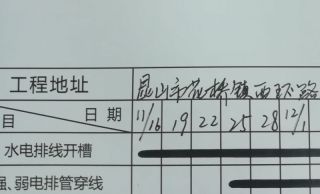 工程地址 昆山市花桥镇西环路
日期 11/16 19 22 25 28 12/1
目
水电排线开槽
、弱电排管穿线